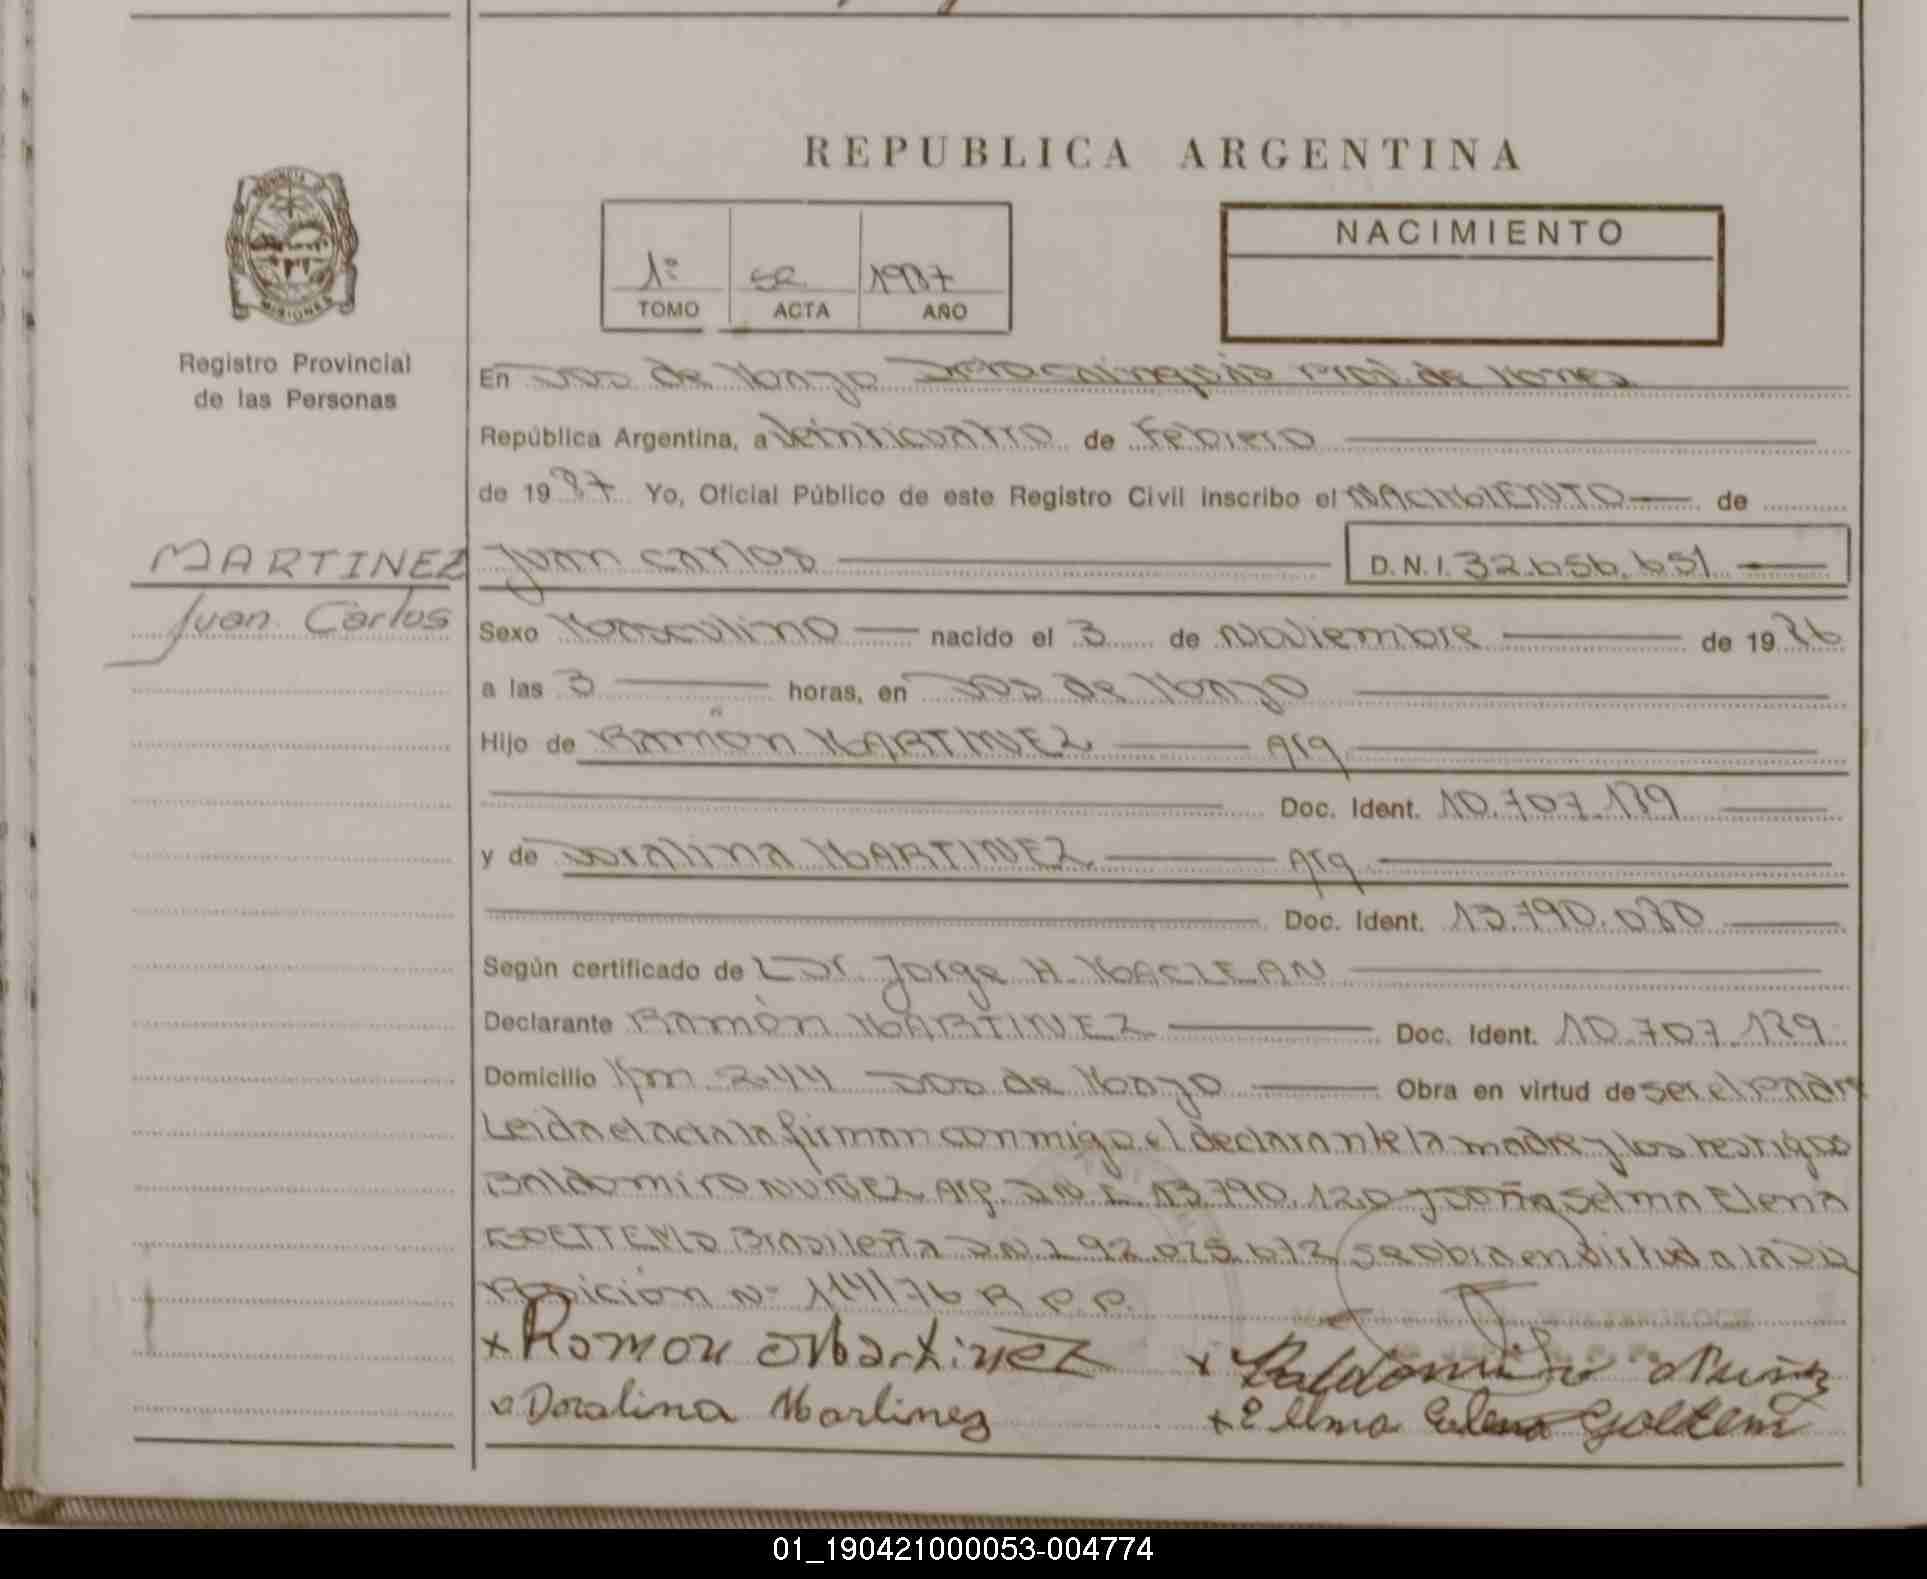 REPUBLICA ARGENTINA
MISIONES
1º 52 1987
TOMO ACTA AÑO
NACIMIENTO
Registro Provincial
de las Personas
En Dos de Mayo Dpto Cainguás Prov. de Mones
República Argentina, a Veinticuatro de Febrero
de 1987 Yo, Oficial Público de este Registro Civil inscribo el NACIMIENTO de
MARTINEZ
Juan Carlos
Juan Carlos D.N.I. 32.656.651
Sexo Masculino nacido el 3 de Noviembre de 1986
a las 3 horas, en Dos de Mayo
Hijo de Ramón MARTINEZ Arg
Doc. Ident. 10.707.189
y de Doralina MARTINEZ Arg
Doc. Ident. 13.790.080
Según certificado de Dr Jorge H. MACLEAN
Declarante Ramón MARTINEZ Doc. Ident. 10.707.189
Domicilio Km 244 Dos de Mayo Obra en virtud de ser el Padre
Leida el acta la firman conmigo el declarante la madre y los testigos
Baldomiro NUÑEZ Arg. D.N.I. 13.790.120 y Doña Selma Elena
Brasileña DNI 92.025.612 se obra en virtud a la Dis
posición Nº 114/76 R.P.P.
x Ramon Martinez x Baldomiro Nuñez
x Doralina Martinez x Selma Elena
01_190421000053-004774